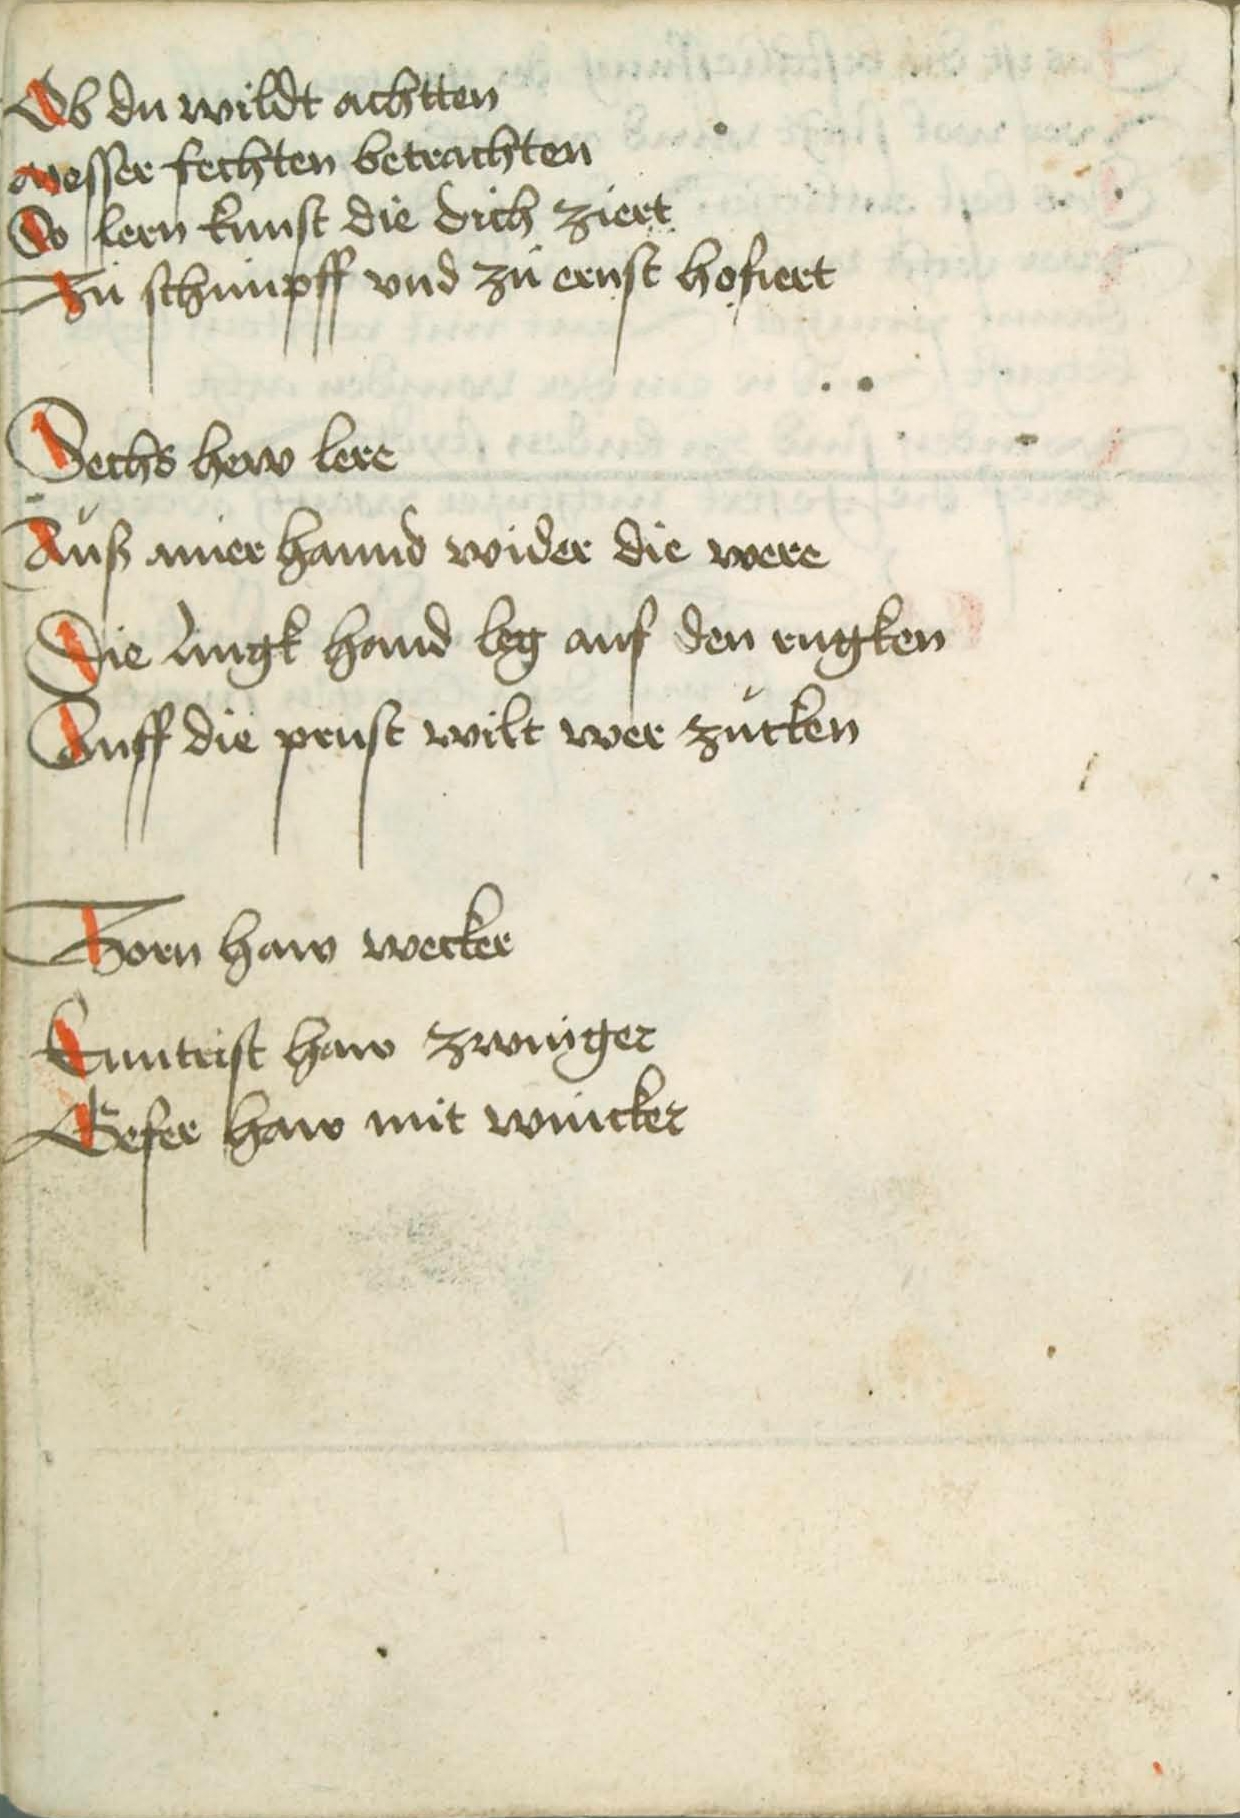 Ob du wildt achtten
messer fechten betrachten
So lern kunst die dich ziert
Zu schimpff vnd zu ernst hofiert
Sechs hew lere
Auß ainer hannd wider die were
Die lingk hand leg auf den rugken
Auff die prust wilt wer zucken
Zorn haw wecker
Entrist haw zwinger
Gefer haw mit wincker